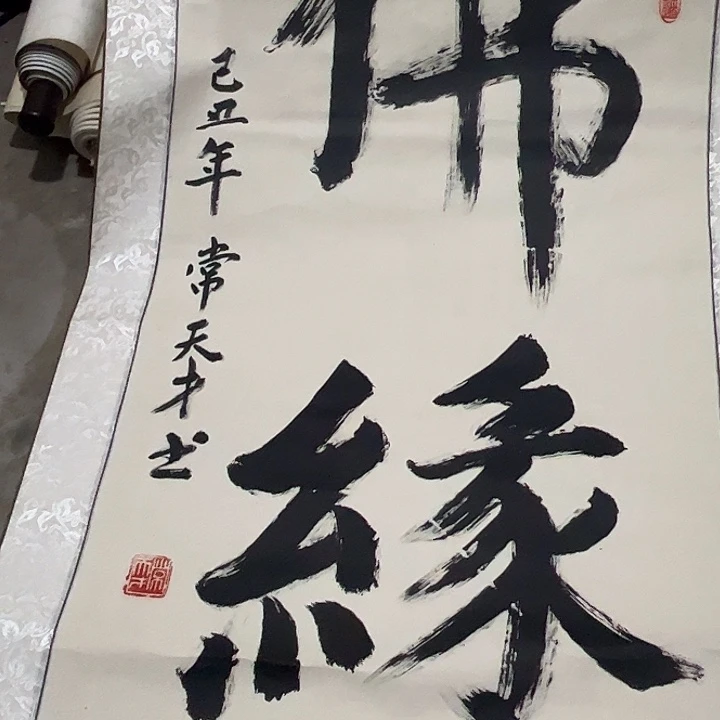 佛緣
己丑年 常天才书